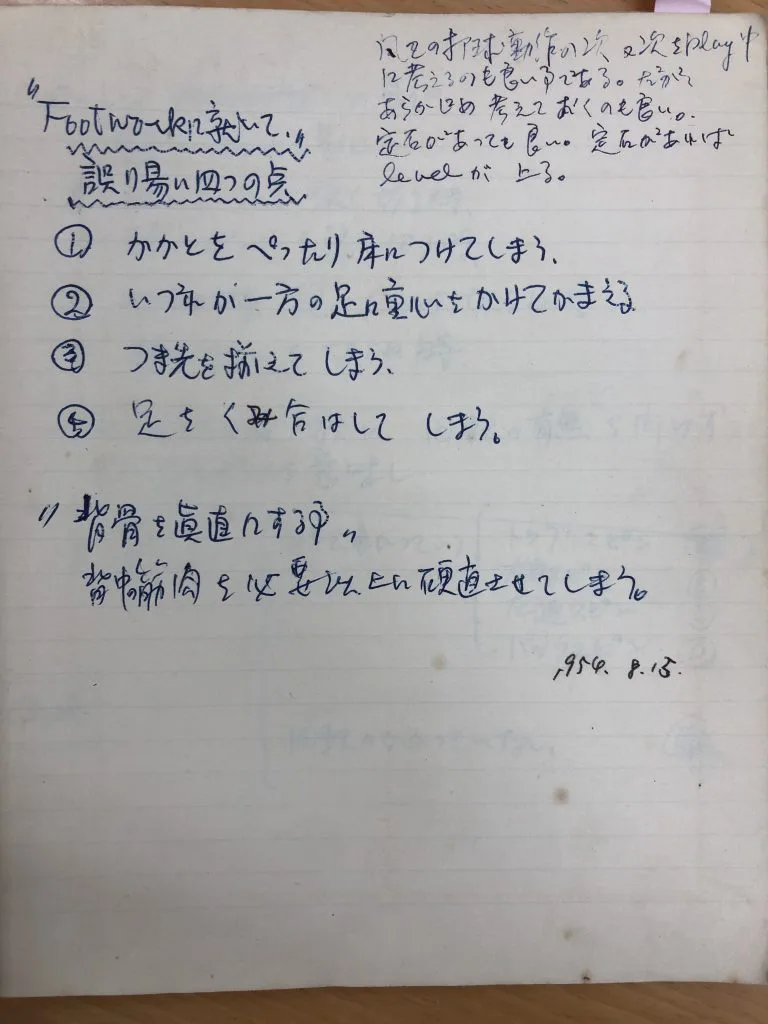 の打球動作の次 又次をplay中
に考えるのも良い事である。だが
あらかじめ考えておくのも良い。
定石があっても良い。定石があれば
levelが上る。
"Footworkに就いて、"
誤り易い四つの点
① かかとをぺったり床につけてしまう、
② いづれか一方の足に重心をかけてかまえる
③ つま先を揃えてしまう、
④ 足をくみ合はしてしまう。
"背骨を真直にする事"
背中筋肉を必要以上に硬直させてしまう。
1954. 8. 15.